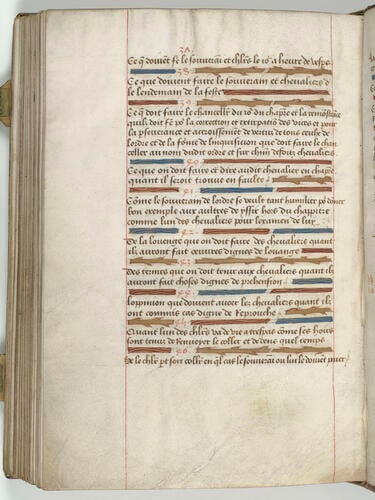 37.
Ce q̃ doivẽt fẽ le souverãi et chl̃rs le ior a heure de vesp̃s
38.
Ce que doivent faire le souverain et chevaliers
le lendemain de la feste
39.
Ce q̃ doit faire le chancellier du io du chap̃re et la
quil doit fẽ po la correction et extirpatiõ des vices et pour
la p̃severance et accroissement de vertus de tous ceulx de
lordre et de la fõme de linquisition que doit faire le chan
cellier au nom dudit ordre et sur chũn desditz chevaliers
40.
Ce que on doit faire et dire audit chevalier en chap̃re
quant il seroit trouve en faulte
41.
Cõme le souverain de lordre se veult tant humilier po dõner
bon exemple aux aultres de yssir hors du chapitre
comme lun des chevaliers pour lexamen de luy
42.
De la louenge que on doit faire des chevaliers quant
il auront fait oeuvres dignes de louange
43.
Des termes que on doit tenir aux chevaliers quant ilz
auront fait choses dignes de p̃hension
44.
Lopinion que doivent avoir les chevaliers quant ilz
ont commis cas digne de reprouche
45.
Quant lun des chl̃rs va de vie a trespas cõme ses hoirs
sont tenuz de renvoyer le collier et dedens quel temps
46.
de le chl̃r p̃t son collier en q̃l cas le souverãi ou luy le doivẽt